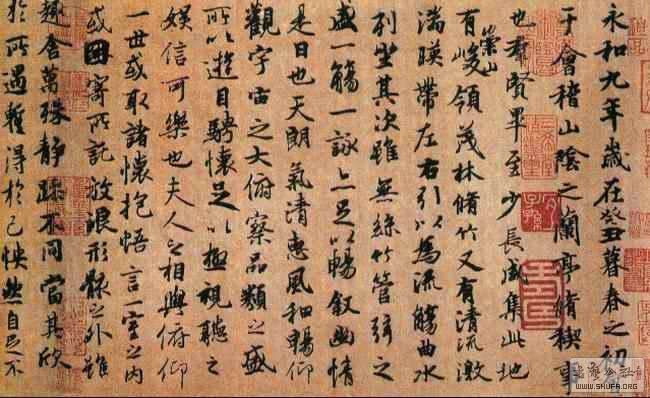 永和九年歲在癸丑暮春之初
于會稽山陰之蘭亭脩稧事
也羣賢畢至少長咸集此地
有崇山峻領茂林脩竹又有清流激
湍暎帶左右引以為流觴曲水
列坐其次雖無絲竹管弦之
盛一觴一詠亦足以暢叙幽情
是日也天朗氣清惠風和暢仰
觀宇宙之大俯察品類之盛
所以遊目騁懷足以極視聽之
娛信可樂也夫人之相與俯仰
一世或取諸懷抱悟言一室之內
或因寄所託放浪形骸之外雖
趣舍萬殊靜躁不同當其欣
於所遇蹔得於己怏然自足不
WWW.SHUFA.ORG